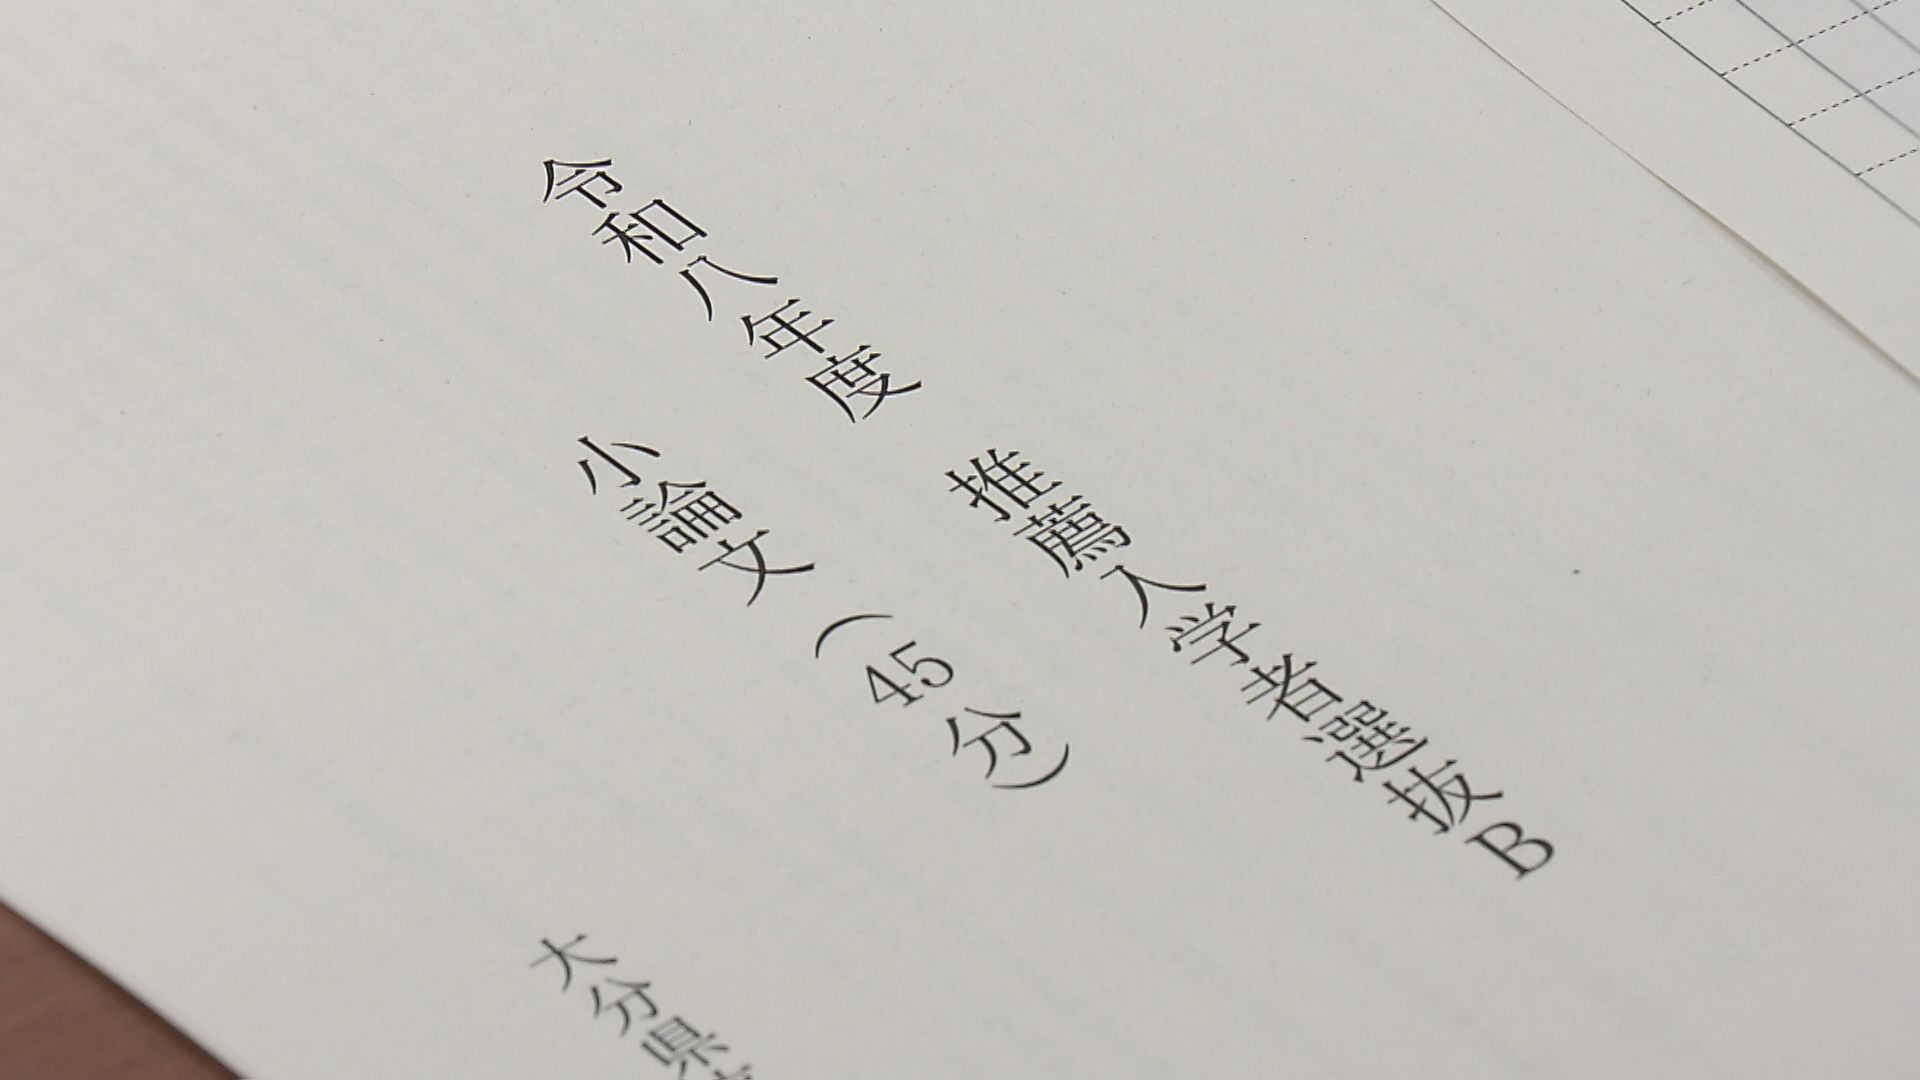 令和八年度 推薦入学者選抜B
小論文（45分）
大分県